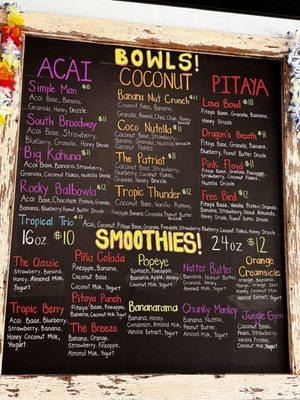 BOWLS!
ACAI
Simple Man $10
Acai Base, Banana,
Granola, Honey Drizzle
South Broadway $11
Acai Base, Strawberry,
Banana, Granola, Honey Drizzle
Big Kahuna $11
Acai Base, Banana, Strawberry,
Granola, Coconut Flakes, Nutella Drizzle
Rocky Balbowla $12
Acai Base, Vanilla Protein, Granola,
Banana, Strawberry,
Honey, Peanut Butter Drizzle
COCONUT
Banana Nut Crunch $11
Coconut Base, Banana,
Granola, Almond, Choc Chips, Honey
Coco Nutella $11
Coconut Base, Strawberry,
Banana, Granola, Nutella
Drizzle
The Patriot $11
Coconut Base, Strawberry,
Blueberry, Coconut Flakes,
Granola, Honey Drizzle
Tropic Thunder $12
Coconut Base, Vanilla Protein,
Pineapple, Banana, Granola, Peanut Butter Drizzle
PITAYA
Lava Bowl $10
Pitaya Base, Banana,
Granola, Honey Drizzle
Dragon's Breath $11
Pitaya Base, Granola, Banana,
Blueberry, Peanut Butter Drizzle
Pink Floyd $11
Pitaya Base, Granola, Pineapple,
Strawberry, Coconut Flakes,
Nutella Drizzle
Free Bird $12
Pitaya Base, Vanilla Protein, Granola,
Banana, Strawberry, Sliced Almonds,
Honey, Peanut Butter Drizzle
Tropical Trio $13
Acai Base, Coconut Base, Pitaya Base, Granola, Pineapple, Strawberry, Blueberry, Coconut Flakes, Honey Drizzle
16oz $10
SMOOTHIES!
24oz $12
The Classic
Strawberry, Banana,
Honey, Almond Milk,
Yogurt
Piña Colada
Pineapple, Banana,
Coconut Base,
Coconut Milk, Yogurt
Popeye
Spinach, Pineapple,
Banana, Apple, Honey,
Coconut Milk
Nutter Butter
Banana, Peanut
Butter, Granola,
Honey,
Almond Milk, Yogurt
Orange
Creamsicle
Orange, Banana,
Mango, Orange Zest,
Coconut Milk, Yogurt,
Vanilla Extract
Tropic Berry
Acai Base, Blueberry,
Strawberry, Banana,
Honey, Coconut Milk
Yogurt
Pitaya Punch
Pitaya Base, Pineapple,
Banana,
Coconut Milk, Yogurt
The Breeze
Banana, Orange,
Strawberry, Pineapple,
Almond Milk, Yogurt
Bananarama
Banana, Honey,
Cinnamon, Almond Milk, Yogurt,
Vanilla Extract
Chunky Monkey
Banana, Nutella,
Peanut Butter,
Almond Milk, Yogurt
Jungle Gym
Coconut Base,
Banana,
Peach, Strawberry,
Vanilla Protein,
Coconut Milk,
Yogurt